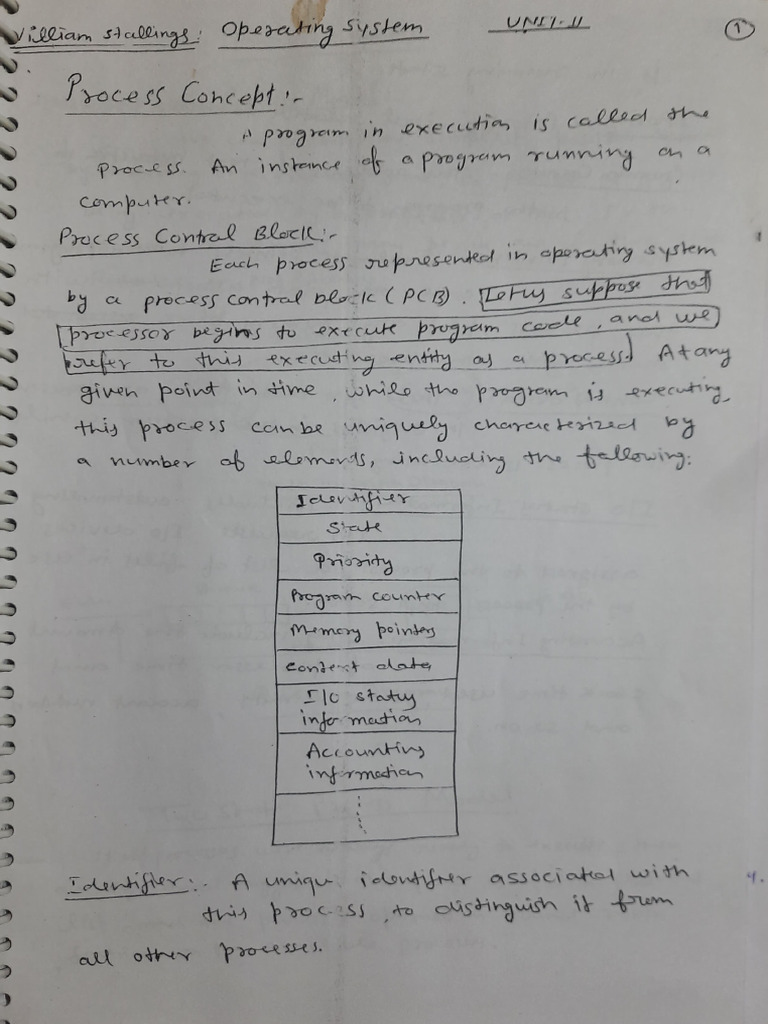 William Stallings: Operating System UNIT-II 1
Process Concept:-
A program in execution is called the
process. An instance of a program running on a
computer.
Process Control Block:-
Each process represented in operating system
by a process control block (PCB). Let us suppose that
processor begins to execute program code, and we
refer to this executing entity as a process. At any
given point in time, while the program is executing,
this process can be uniquely characterized by
a number of elements, including the following:
Identifier
State
Priority
Program counter
Memory pointers
Context data
I/O status
information
Accounting
information
Identifier:- A unique identifier associated with
this process, to distinguish it from
all other processes.
4.